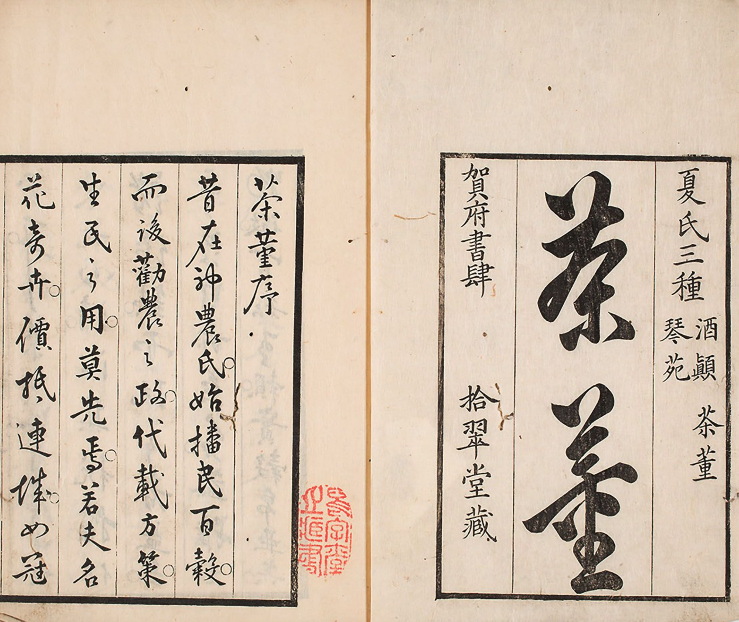 夏氏三種 酒顚 茶董
琴苑
茶董
賀府書肆 拾翠堂藏
茶董序
昔在神農氏。始播民百穀。
而後勸農之政。代載方策。
生民之用。莫先焉。若夫名
花奇卉。價抵連城。如冠